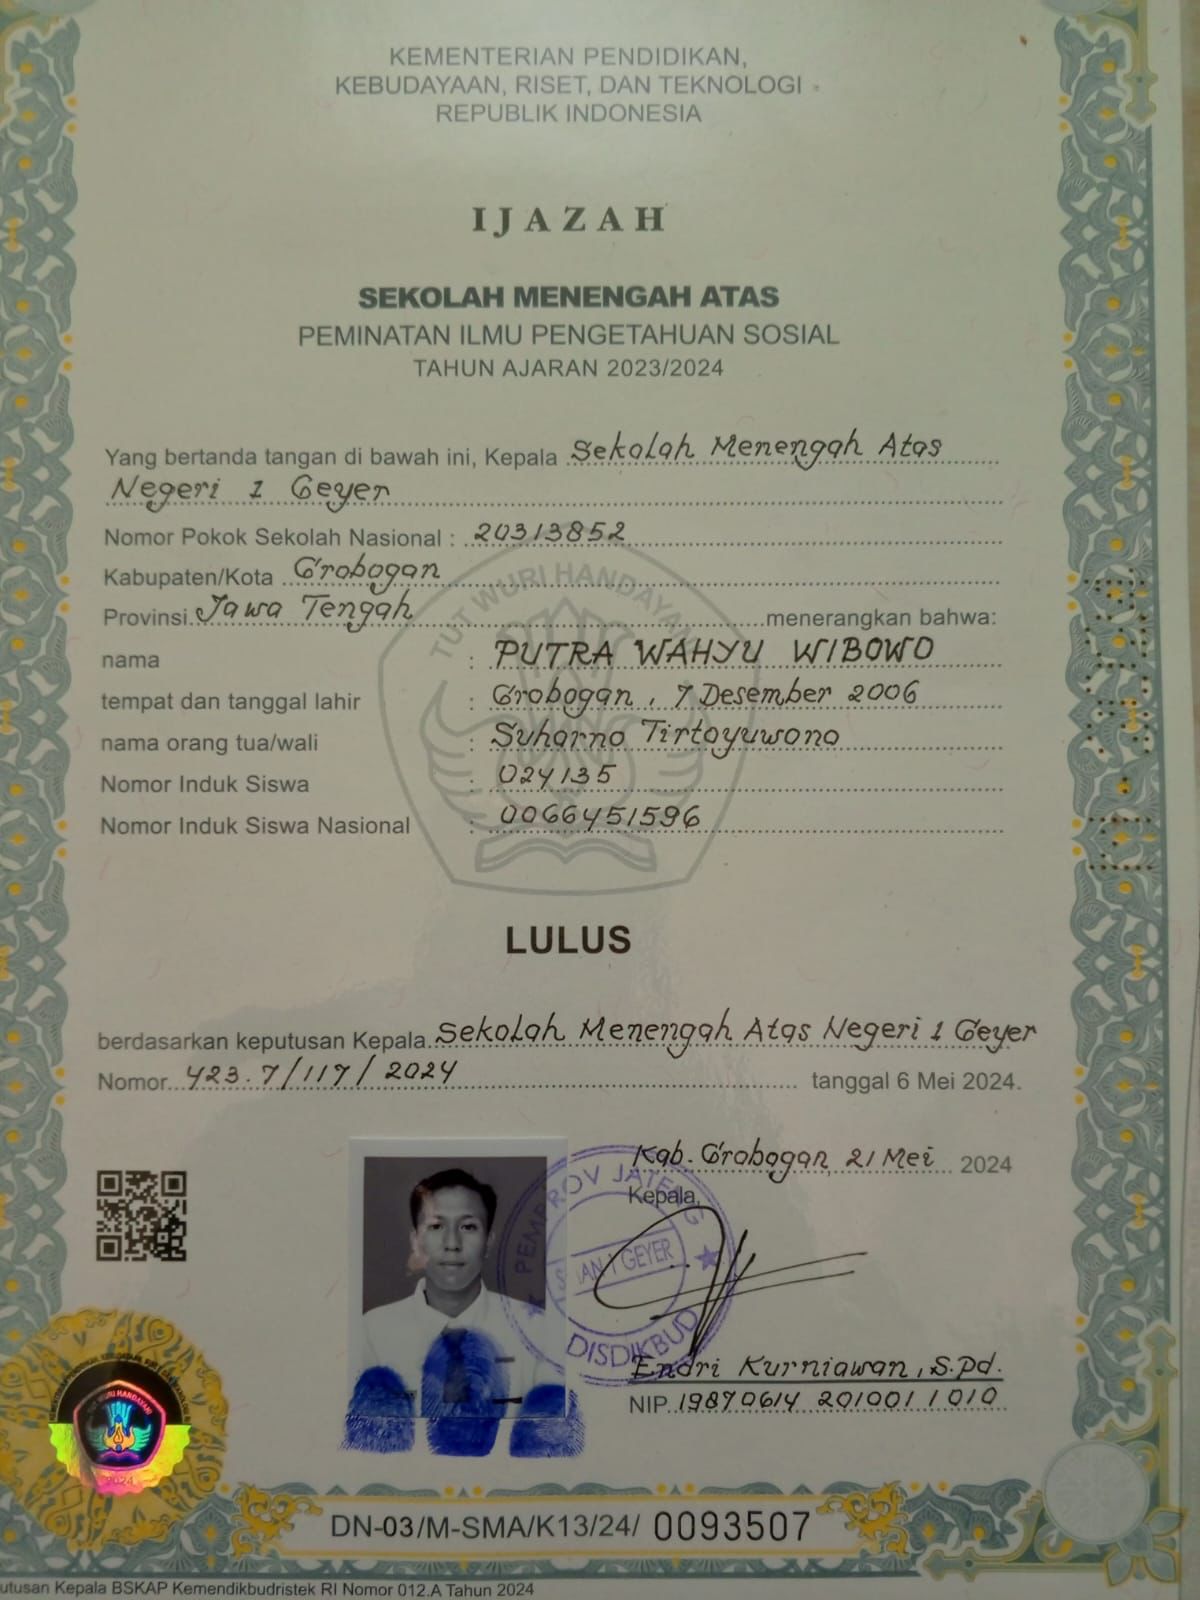 KEMENTERIAN PENDIDIKAN,
KEBUDAYAAN, RISET, DAN TEKNOLOGI
REPUBLIK INDONESIA
IJAZAH
SEKOLAH MENENGAH ATAS
PEMINATAN ILMU PENGETAHUAN SOSIAL
TAHUN AJARAN 2023/2024
Yang bertanda tangan di bawah ini, Kepala Sekolah Menengah Atas
Negeri 1 Geyer
Nomor Pokok Sekolah Nasional : 20313852
Kabupaten/Kota Grobogan
Provinsi Jawa Tengah menerangkan bahwa:
TUT WURI HANDAYANI
nama : PUTRA WAHYU WIBOWO
tempat dan tanggal lahir : Grobogan, 7 Desember 2006
nama orang tua/wali : Suharno Tirtoyuwono
Nomor Induk Siswa : 024135
Nomor Induk Siswa Nasional : 0066451596
LULUS
berdasarkan keputusan Kepala Sekolah Menengah Atas Negeri 1 Geyer
Nomor 423.7/117/2024 tanggal 6 Mei 2024.
Kab. Grobogan, 21 Mei 2024
Kepala,
PEMPROV JATENG
1 GEYER
DISDIKBUD
Endri Kurniawan, S.Pd.
NIP. 19870614 201001 1 010
TUT WURI HANDAYANI
2024
DN-03/M-SMA/K13/24/ 0093507
utusan Kepala BSKAP Kemendikbudristek RI Nomor 012.A Tahun 2024